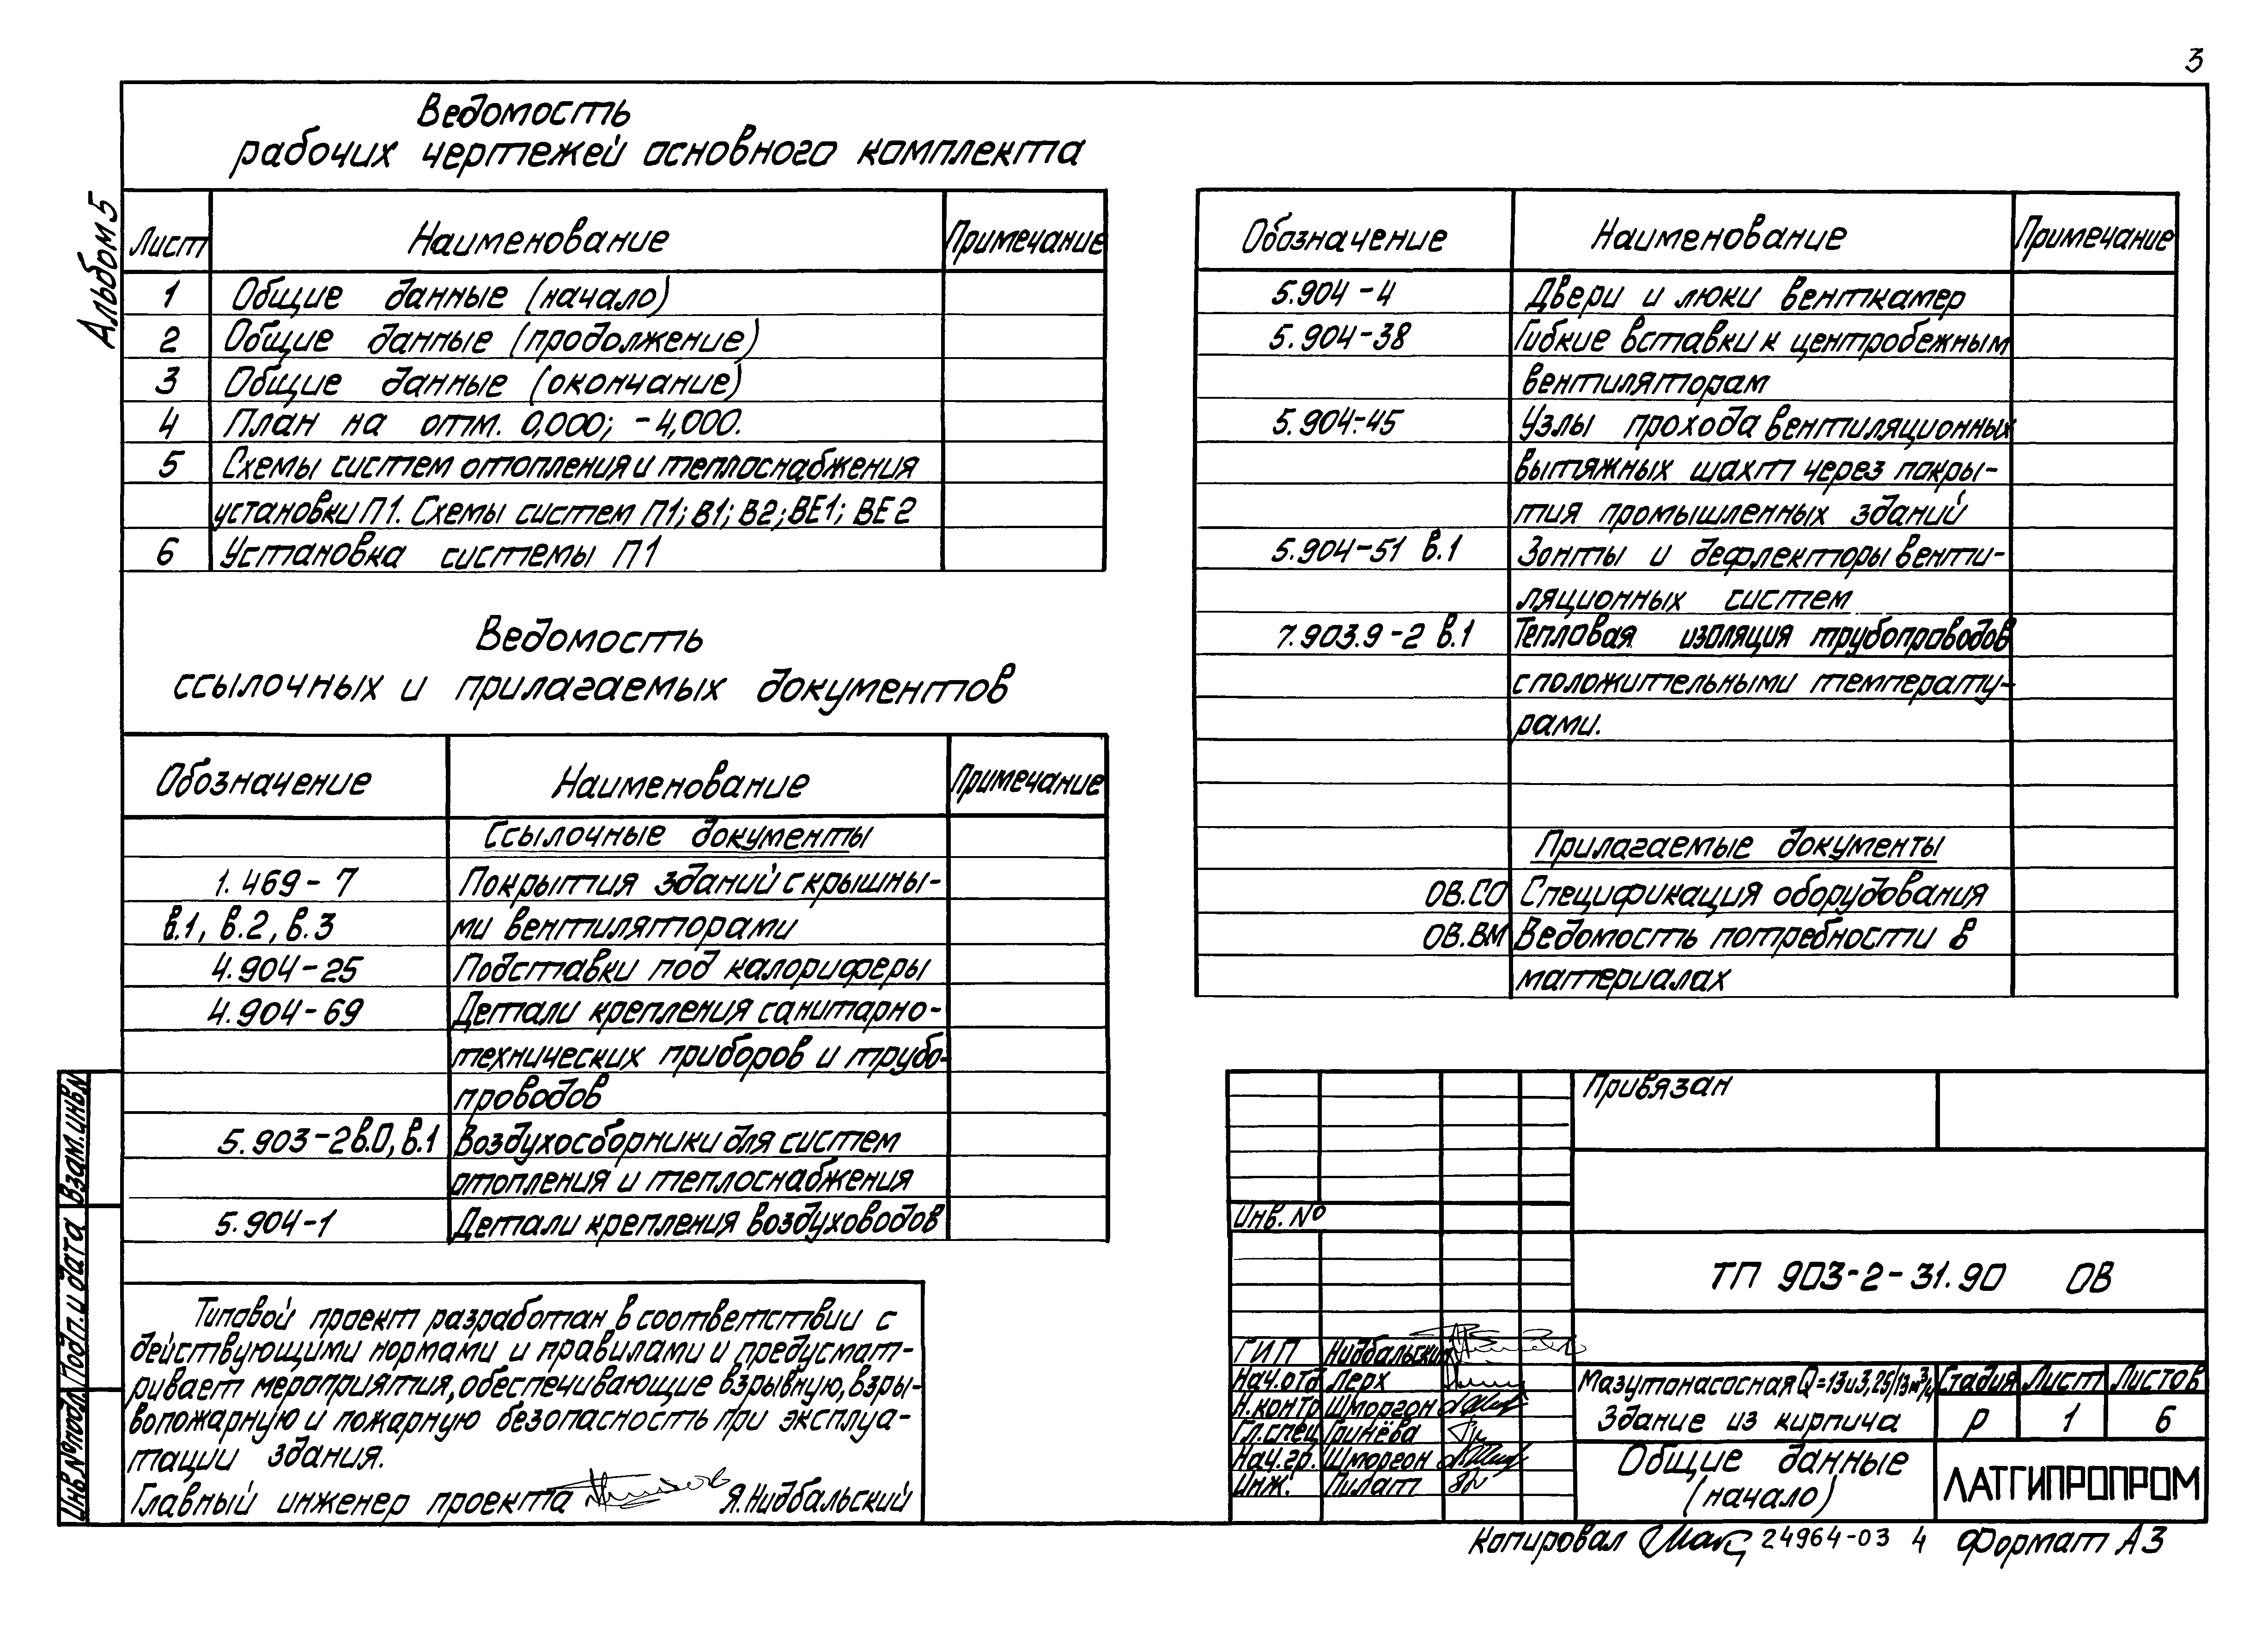 3
Альбом 5
Ведомость
рабочих чертежей основного комплекта
Лист Наименование Примечание
1 Общие данные (начало)
2 Общие данные (продолжение)
3 Общие данные (окончание)
4 План на отм. 0,000; -4,000.
5 Схемы систем отопления и теплоснабжения
установки П1. Схемы систем П1; В1; В2; ВЕ1; ВЕ2
6 Установка системы П1
Ведомость
ссылочных и прилагаемых документов
Обозначение Наименование Примечание
Ссылочные документы
1.469-7 Покрытия зданий с крышны-
в.1, в.2, в.3 ми вентиляторами
4.904-25 Подставки под калориферы
4.904-69 Детали крепления санитарно-
технических приборов и трубо-
проводов
5.903-2 в.0, в.1 Воздухосборники для систем
отопления и теплоснабжения
5.904-1 Детали крепления воздуховодов
Обозначение Наименование Примечание
5.904-4 Двери и люки венткамер
5.904-38 Гибкие вставки к центробежным
вентиляторам
5.904-45 Узлы прохода вентиляционных
вытяжных шахт через покры-
тия промышленных зданий
5.904-51 в.1 Зонты и дефлекторы венти-
ляционных систем
7.903.9-2 в.1 Тепловая изоляция трубопроводов
с положительными температу-
рами.
Прилагаемые документы
ОВ.СО Спецификация оборудования
ОВ.ВМ Ведомость потребности в
материалах
Типовой проект разработан в соответствии с
действующими нормами и правилами и предусмат-
ривает мероприятия, обеспечивающие взрывную, взры-
вопожарную и пожарную безопасность при эксплуа-
тации здания.
Главный инженер проекта Я.Нидбальский
Взам.инв.N
Подп. и дата
Инв.№ подл.
Привязан
Инв. №
ТП 903-2-31.90 ОВ
ГИП Нидбальский
Нач.отд. Лерх
Н.контр. Шморгон
Гл.спец. Гринёва
Нач.гр. Шморгон
Инж. Пилат
Мазутонасосная Q=13и3,25/13 м³/ч
Здание из кирпича
Стадия Лист Листов
Р 1 6
Общие данные
(начало)
ЛАТГИПРОПРОМ
Копировал 24964-03 4 Формат А3